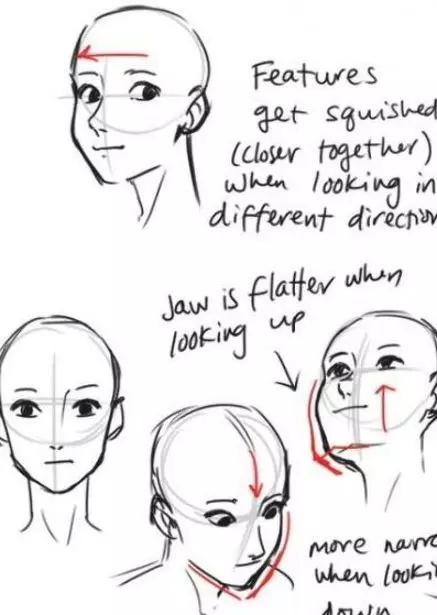 Features
get squished
(closer together)
when looking in
different direction
Jaw is flatter when
looking up
more narro
when looki
down